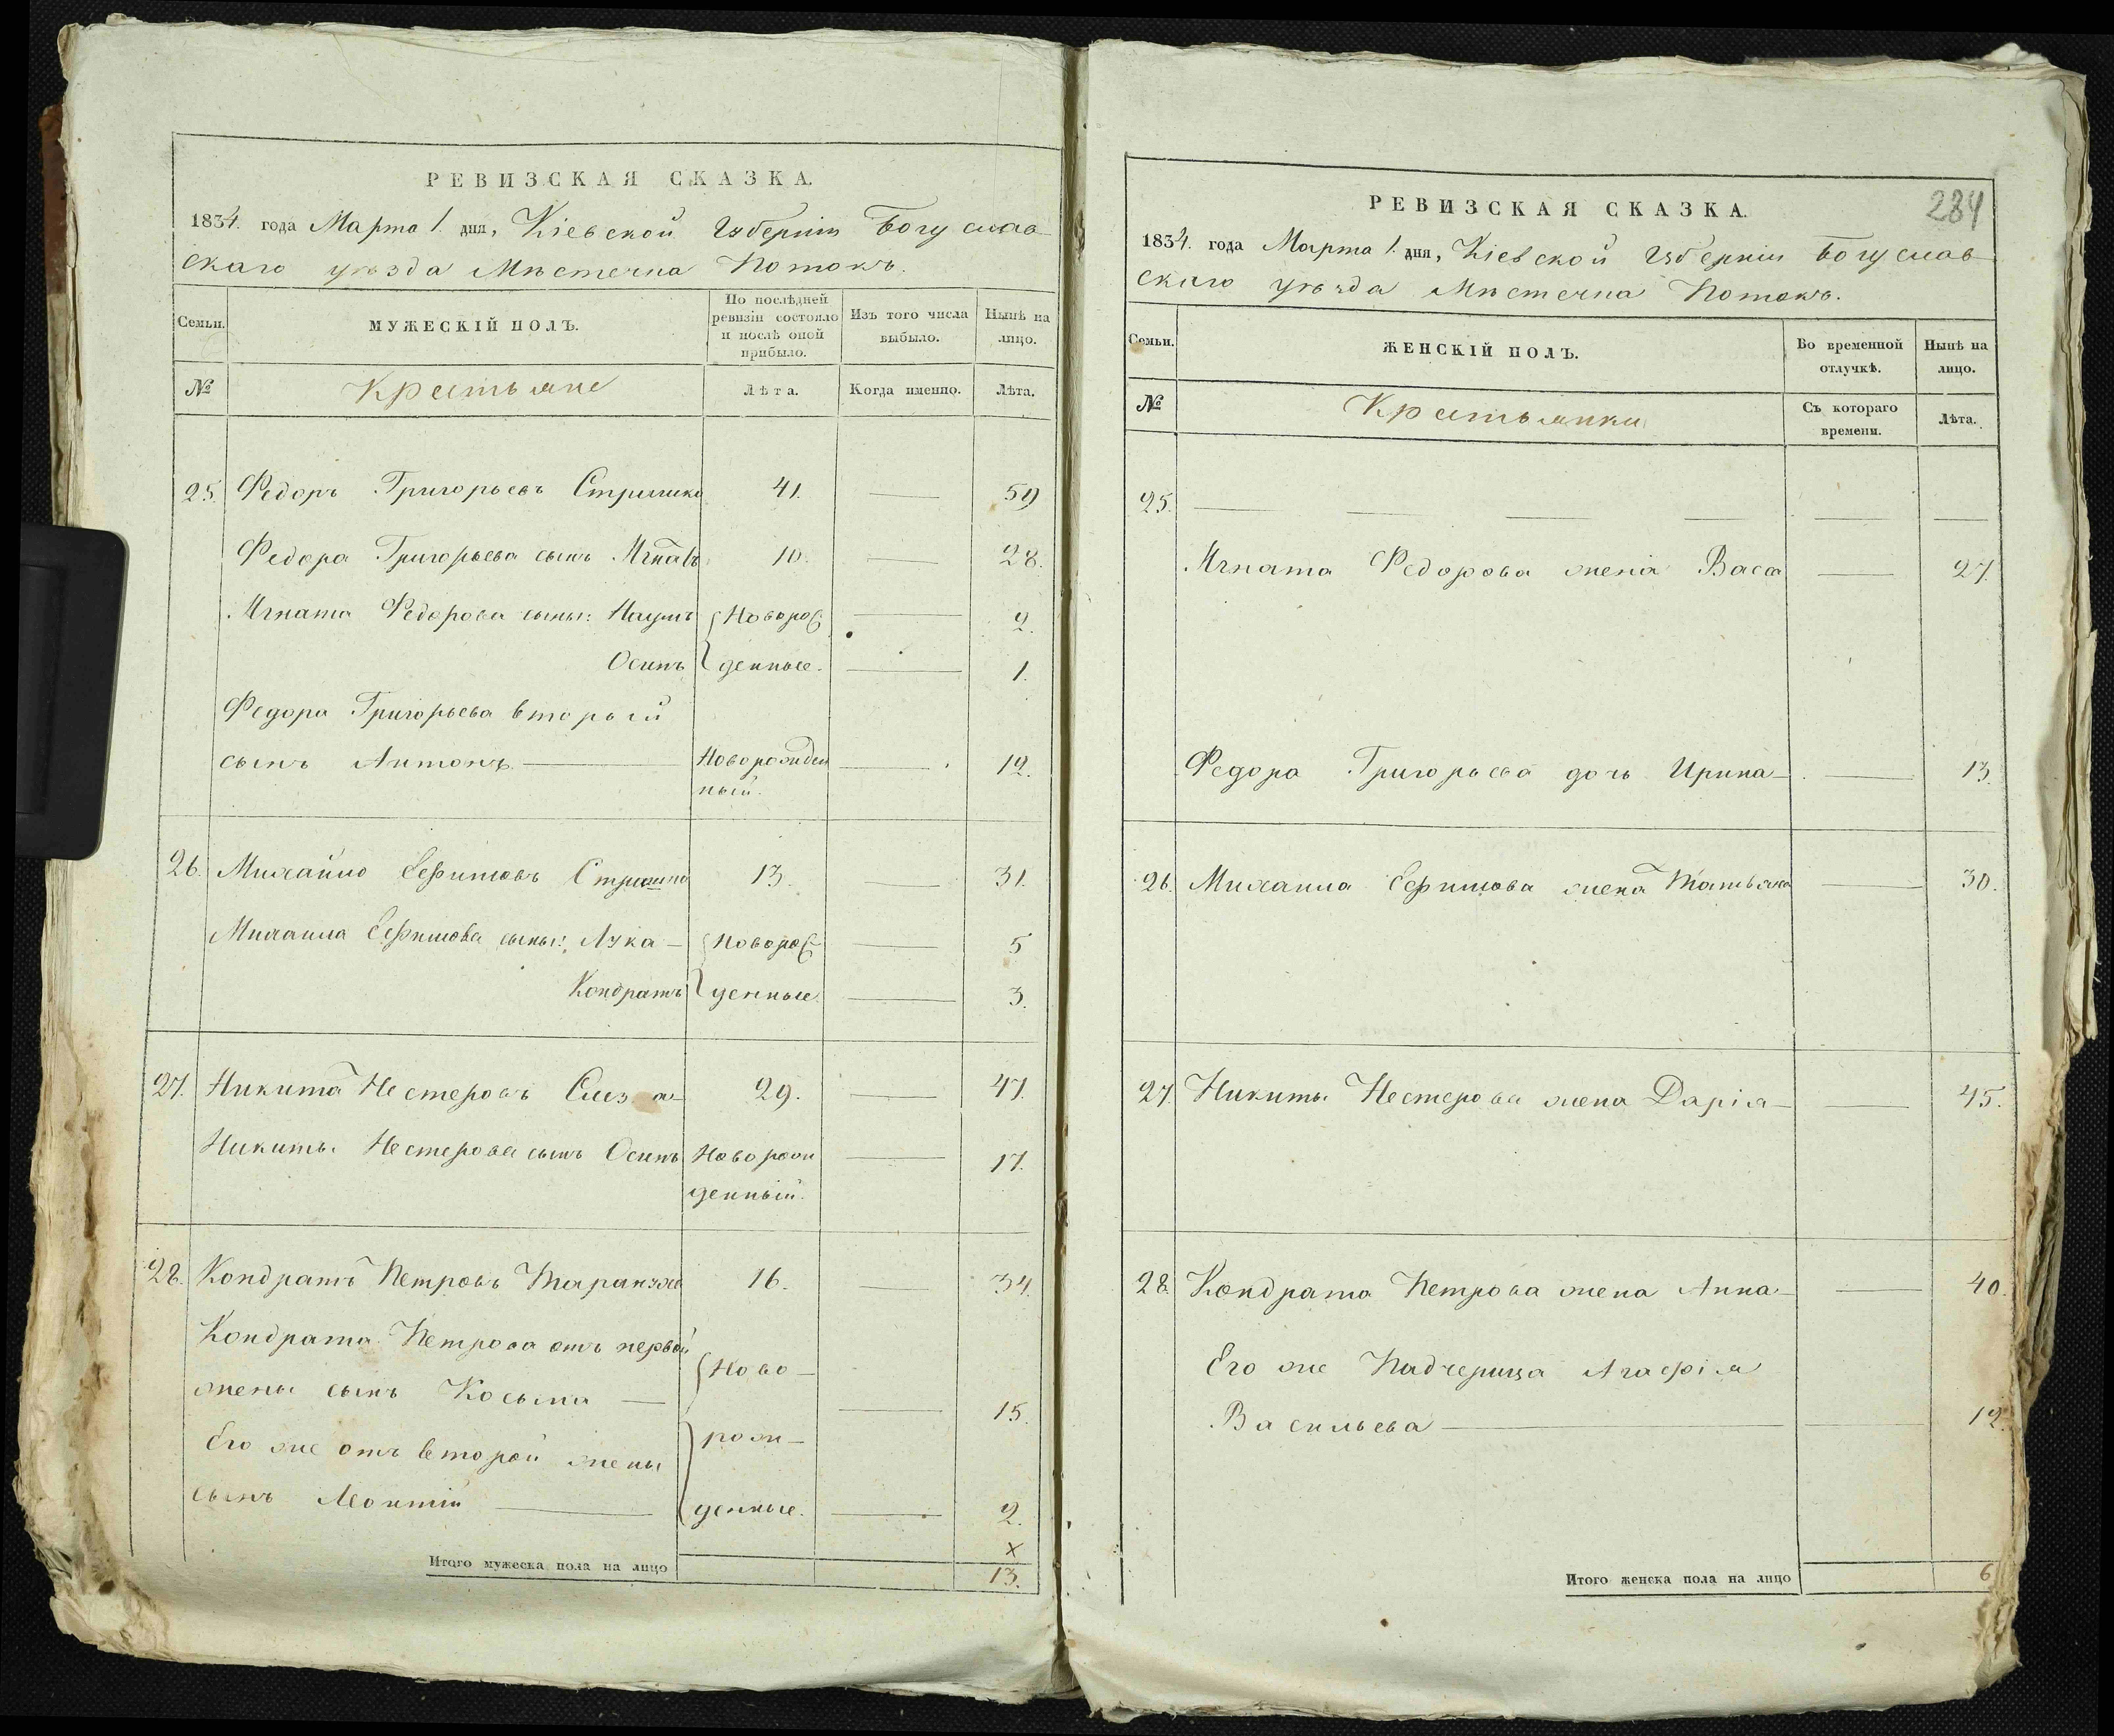 РЕВИЗСКАЯ СКАЗКА.
1834. года Марта 1. дня, Кіевской Губерніи Богуслав-
скаго уѣзда Мѣстечка Потокъ.
Семьи.
МУЖЕСКІЙ ПОЛЪ.
По послѣдней ревизіи состояло и послѣ оной прибыло.
Изъ того числа выбыло.
Нынѣ на лицо.
№ Крестьяне Лѣта. Когда именно. Лѣта.
25. Федоръ Григорьевъ 41. — 59
Федора Григорьева сынъ Игнатъ 10. — 28.
Игната Федорова сыны: Наумъ Новорож — 2.
Осипъ денные. — 1.
Федора Григорьева вторый
сынъ Антонъ — Новорожден — 12.
ный.
26. Михайло Ефимовъ 13. — 31.
Михаила Ефимова сыны: Лука — Новорож — 5
Кондратъ денные. — 3.
27. Никита Нестеровъ 29. — 47.
Никиты Нестерова сынъ Осипъ Новорож — 17.
денный.
28. Кондратъ Петровъ 16. — 34.
Кондрата Петрова отъ первой
жены сынъ Косьма — Ново- — 15.
Его же отъ второй жены рож-
сынъ Леонтій — денные. — 2.
х
Итого мужеска пола на лицо 13.
284
РЕВИЗСКАЯ СКАЗКА.
1834. года Марта 1. дня, Кіевской Губерніи Богуслав-
скаго уѣзда Мѣстечка Потокъ.
Семьи.
ЖЕНСКІЙ ПОЛЪ.
Во временной отлучкѣ.
Нынѣ на лицо.
№ Крестьянки Съ котораго времени. Лѣта.
25. — — — — — —
Игната Федорова жена Васса — 27.
Федора Григорьева дочь Ирина — — 13.
26. Михаила Ефимова жена Татьяна — 30.
27. Никиты Нестерова жена Дарія — — 45.
28. Кондрата Петрова жена Анна — — 40.
Его же Падчерица Агафія
Васильева — — 12.
Итого женска пола на лицо 6